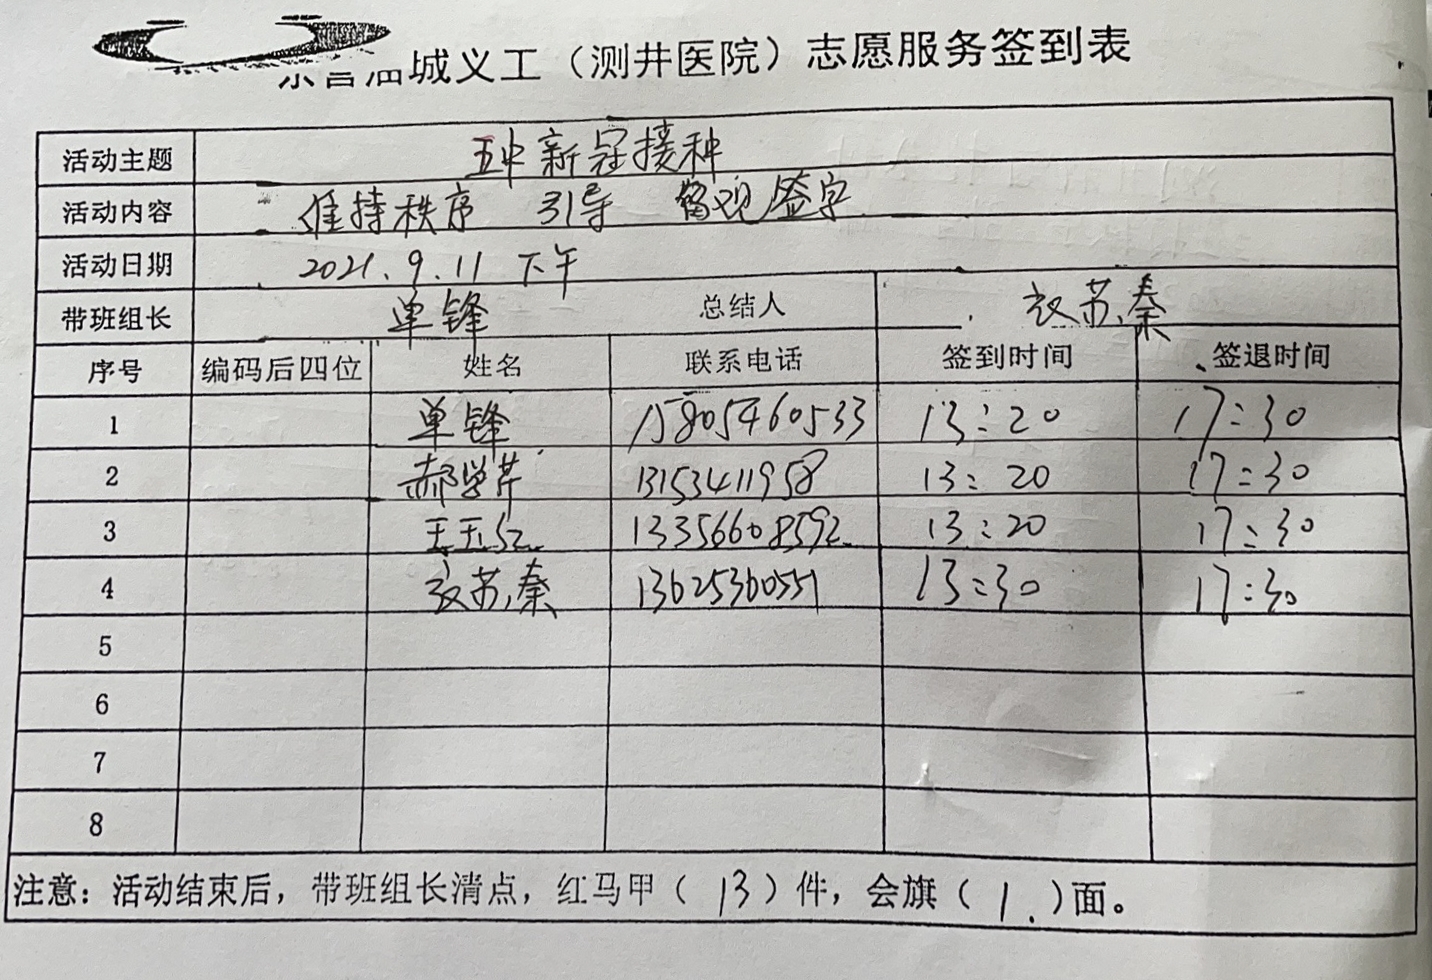 东营油城义工（测井医院）志愿服务签到表
活动主题 五中新冠接种
活动内容 维持秩序 引导 留观签字
活动日期 2021.9.11 下午
带班组长 单锋 总结人 衣苏秦
序号 编码后四位 姓名 联系电话 签到时间 签退时间
1 单锋 15805460533 13:20 17:30
2 郝学芹 13153411958 13:20 17:30
3 王玉红 13356608592 13:20 17:30
4 衣苏秦 13625360551 13:30 17:30
5
6
7
8
注意：活动结束后，带班组长清点，红马甲（13）件，会旗（1.）面。